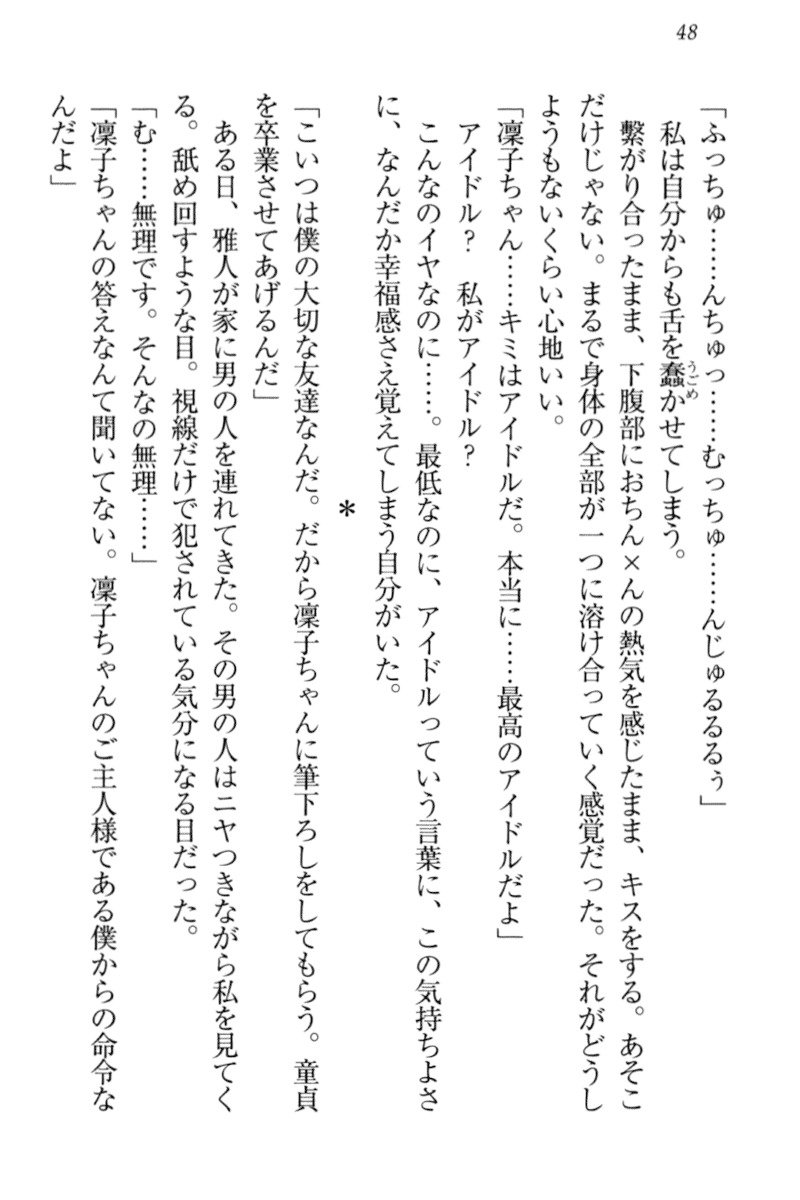 48
「ふっちゅ……んちゅっ……むっちゅ……んじゅるるるぅ」
私は自分からも舌を蠢かせてしまう。
うごめ
繋がり合ったまま、下腹部におちん×んの熱気を感じたまま、キスをする。あそこ
だけじゃない。まるで身体の全部が一つに溶け合っていく感覚だった。それがどうし
ようもないくらい心地いい。
「凛子ちゃん……キミはアイドルだ。本当に……最高のアイドルだよ」
アイドル？　私がアイドル？
こんなのイヤなのに……。最低なのに、アイドルっていう言葉に、この気持ちよさ
に、なんだか幸福感さえ覚えてしまう自分がいた。
＊
「こいつは僕の大切な友達なんだ。だから凛子ちゃんに筆下ろしをしてもらう。童貞
を卒業させてあげるんだ」
ある日、雅人が家に男の人を連れてきた。その男の人はニヤつきながら私を見てく
る。舐め回すような目。視線だけで犯されている気分になる目だった。
「む……無理です。そんなの無理……」
「凛子ちゃんの答えなんて聞いてない。凛子ちゃんのご主人様である僕からの命令な
んだよ」